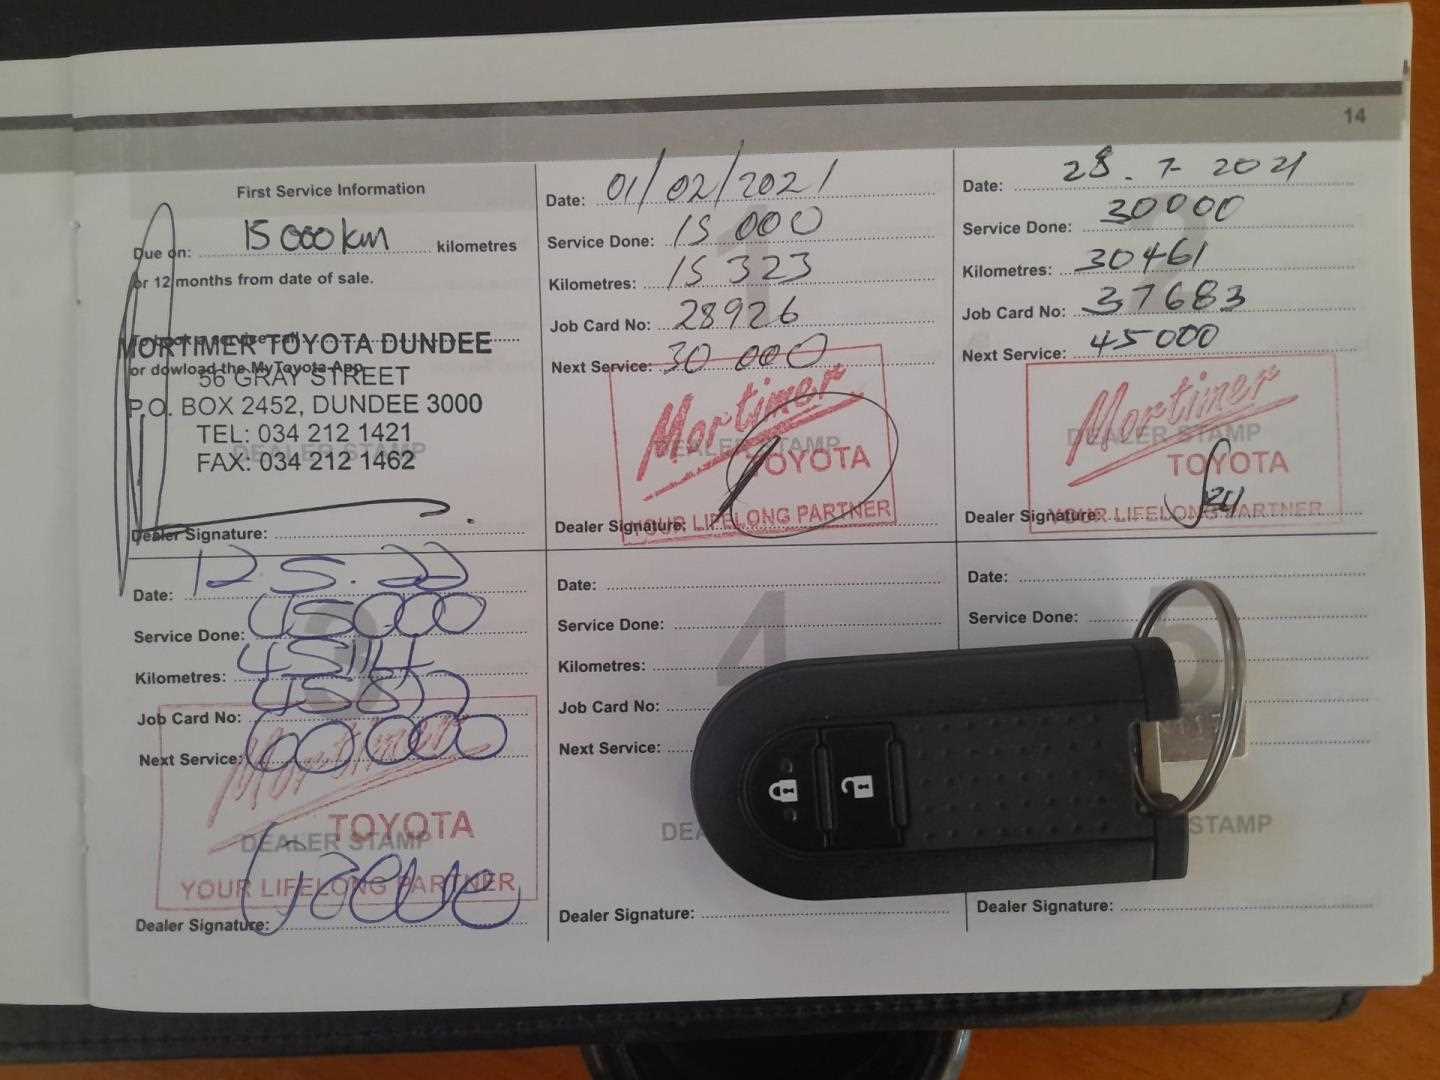 14
First Service Information
Due on: 15 000 km kilometres
or 12 months from date of sale.
To book a service call:
or dowload the MyToyota App
MORTIMER TOYOTA DUNDEE
56 GRAY STREET
P.O. BOX 2452, DUNDEE 3000
TEL: 034 212 1421
FAX: 034 212 1462
DEALER STAMP
Dealer Signature:
1
Date: 01/02/2021
Service Done: 15 000
Kilometres: 15 323
Job Card No: 28926
Next Service: 30 000
Mortimer
DEALER STAMP
TOYOTA
YOUR LIFELONG PARTNER
Dealer Signature:
2
Date: 28.7-2021
Service Done: 30000
Kilometres: 30461
Job Card No: 37683
Next Service: 45000
Mortimer
DEALER STAMP
TOYOTA
YOUR LIFELONG PARTNER
Dealer Signature:
3
Date: 12.5.22
Service Done: 45000
Kilometres:
Job Card No:
Next Service: 60 000
Mortimer
TOYOTA
DEALER STAMP
YOUR LIFELONG PARTNER
Dealer Signature:
4
Date:
Service Done:
Kilometres:
Job Card No:
Next Service:
Dealer Signature:
5
Date:
Service Done:
STAMP
Dealer Signature: